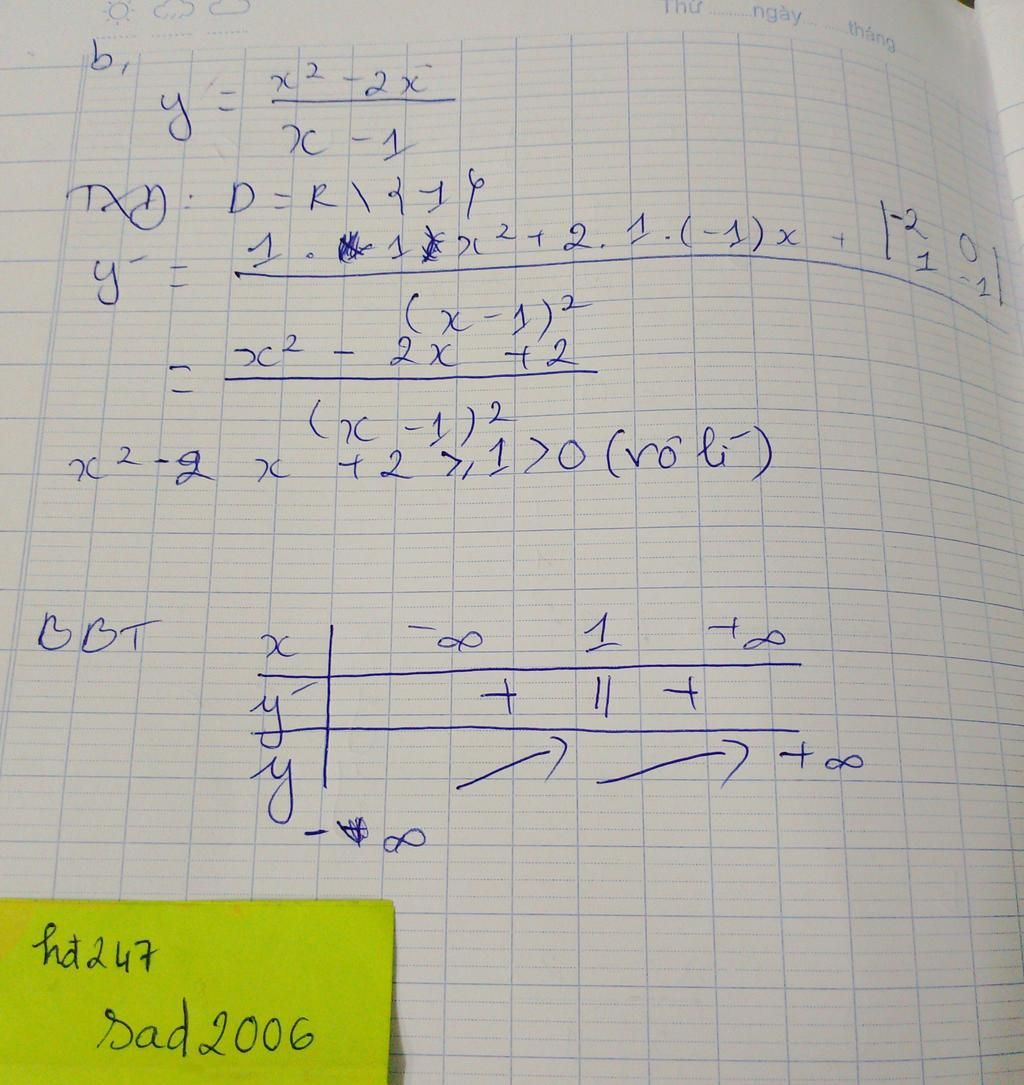 Thứ ........ngày...... tháng
b,
y = (x² - 2x) / (x - 1)
TXĐ: D = R \ {1}
y' = (1 . 1 x² + 2. 1 . (-1)x + |-2 0; 1 -1|) / (x - 1)²
= (x² - 2x + 2) / (x - 1)²
x² - 2 x + 2 ⩾ 1 > 0 (vô lí)
BBT x | -∞ 1 +∞
y' | + || +
y | ↗ ↗ +∞
-∞
hđ247
sad2006